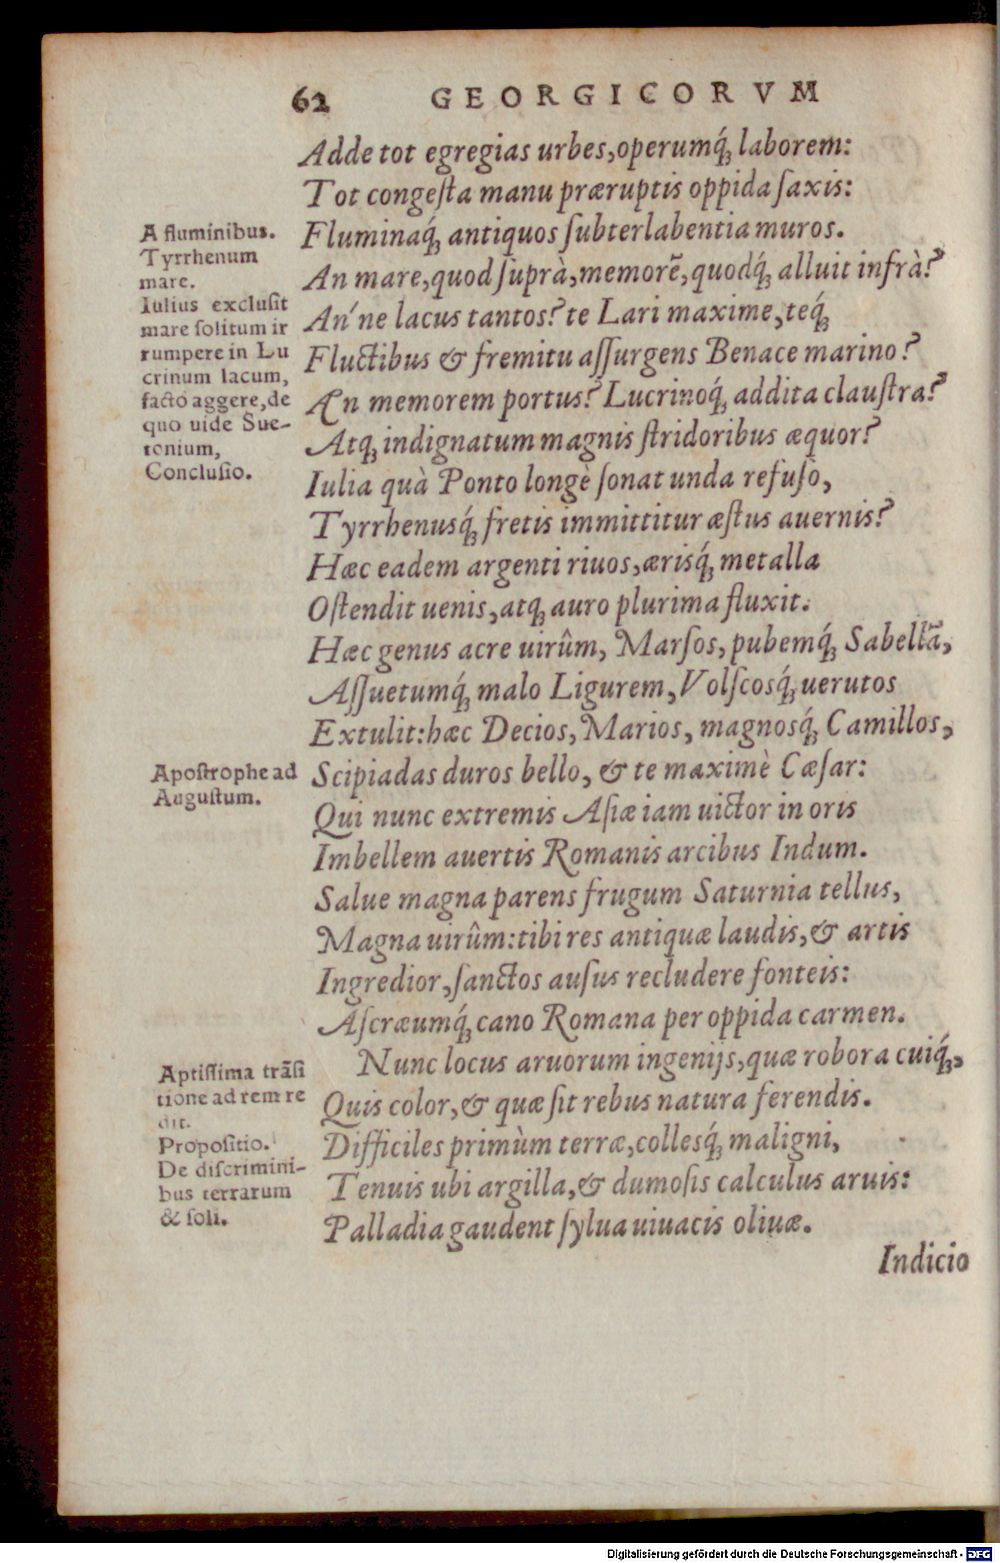 62 GEORGICORVM
Adde tot egregias urbes, operumq́; laborem:
Tot congesta manu præruptis oppida saxis:
Fluminaq́; antiquos subterlabentia muros.
An mare, quod suprà, memorē, quodq́; alluit infrà?
Ań ne lacus tantos? te Lari maxime, teq́;
Fluctibus & fremitu assurgens Benace marino?
An memorem portus? Lucrinoq́; addita claustra?
Atq; indignatum magnis stridoribus æquor?
Iulia quà Ponto longè sonat unda refuso,
Tyrrhenusq́; fretis immittitur æstus auernis?
Hæc eadem argenti riuos, ærisq́; metalla
Ostendit uenis, atq; auro plurima fluxit.
Hæc genus acre uirûm, Marsos, pubemq́; Sabellā,
Assuetumq́; malo Ligurem, Volscosq́; uerutos
Extulit: hæc Decios, Marios, magnosq́; Camillos,
Scipiadas duros bello, & te maximè Cæsar:
Qui nunc extremis Asiæ iam uictor in oris
Imbellem auertis Romanis arcibus Indum.
Salue magna parens frugum Saturnia tellus,
Magna uirûm: tibi res antiquæ laudis, & artis
Ingredior, sanctos ausus recludere fonteis:
Ascræumq́; cano Romana per oppida carmen.
Nunc locus aruorum ingenijs, quæ robora cuiq́;,
Quis color, & quæ sit rebus natura ferendis.
Difficiles primùm terræ, collesq́; maligni,
Tenuis ubi argilla, & dumosis calculus aruis:
Palladia gaudent sylua uiuacis oliuæ.
Indicio
A fluminibus.
Tyrrhenum
mare.
Iulius exclusit
mare solitum ir
rumpere in Lu
crinum lacum,
facto aggere, de
quo uide Sue-
tonium,
Conclusio.
Apostrophe ad
Augustum.
Aptissima trāsi
tione ad rem re
dit.
Propositio.
De discrimini-
bus terrarum
& soli.
Digitalisierung gefördert durch die Deutsche Forschungsgemeinschaft - DFG